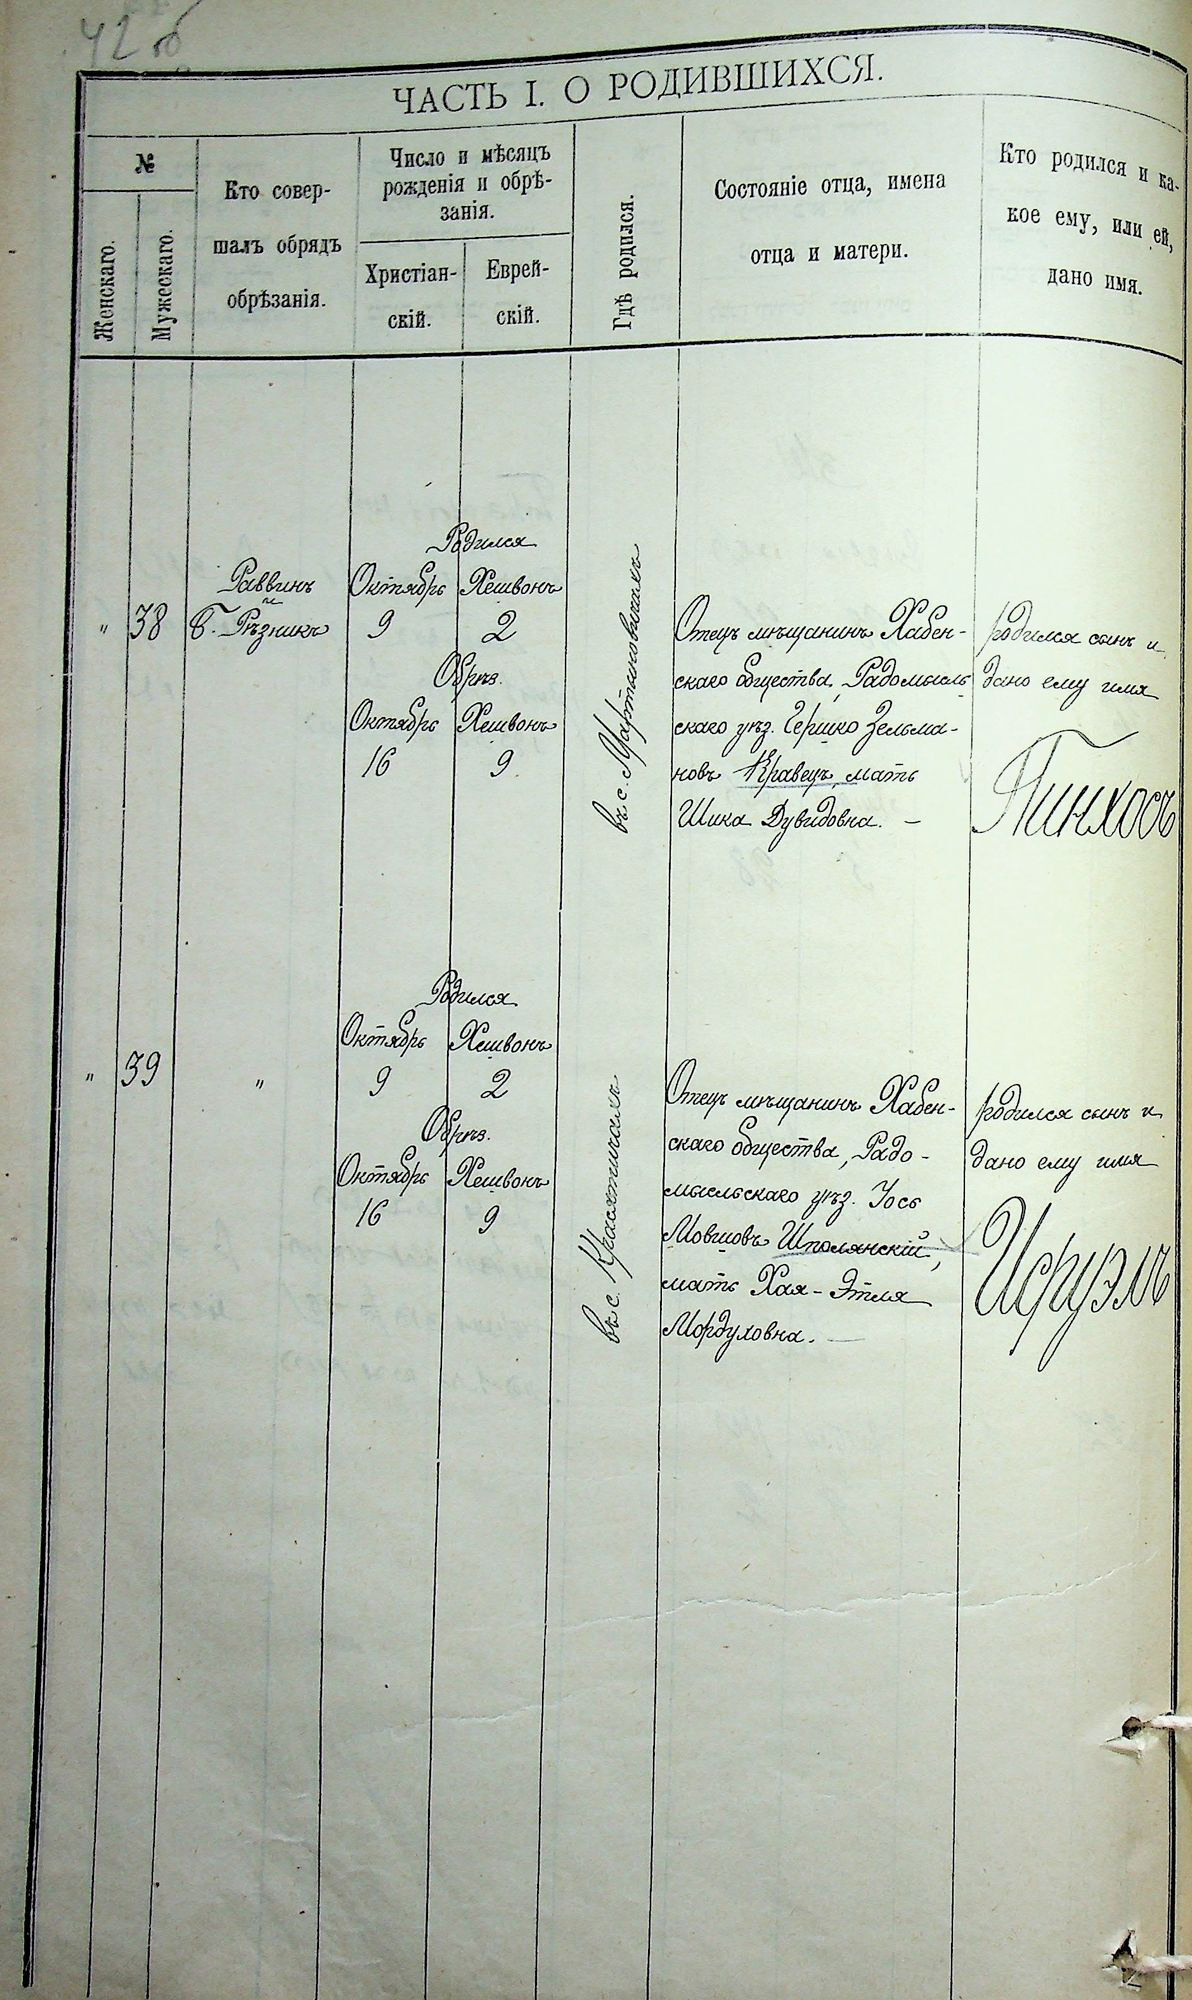 42 об
ЧАСТЬ I. О РОДИВШИХСЯ.
№
Женскаго.
Мужескаго.
Кто совер-
шалъ обрядъ
обрѣзанія.
Число и мѣсяцъ
рожденія и обрѣ-
занія.
Христіан-
скій.
Еврей-
скій.
Гдѣ родился.
Состояніе отца, имена
отца и матери.
Кто родился и ка-
кое ему, или ей,
дано имя.
"
38
Раввинъ
и
Б. Рѣзникъ
Родился
Октябрь Хешвонъ
9 2
Обрѣз.
Октябрь Хешвонъ
16 9
въ с. Мартыновичахъ
Отецъ мѣщанинъ Хабен-
скаго общества, Радомысль
скаго уѣз. Гершко Зельма-
новъ Кравецъ, мать
Шика Дувидовна. —
родился сынъ и
дано ему имя
Пинхосъ
"
39
"
Родился
Октябрь Хешвонъ
9 2
Обрѣз.
Октябрь Хешвонъ
16 9
въ с. Красятичахъ
Отецъ мѣщанинъ Хабен-
скаго общества, Радо-
мысльскаго уѣз. Іось
Мовшовъ Шполянскій,
мать Хая-Этля
Мордуховна. —
родился сынъ и
дано ему имя
Исруэлъ